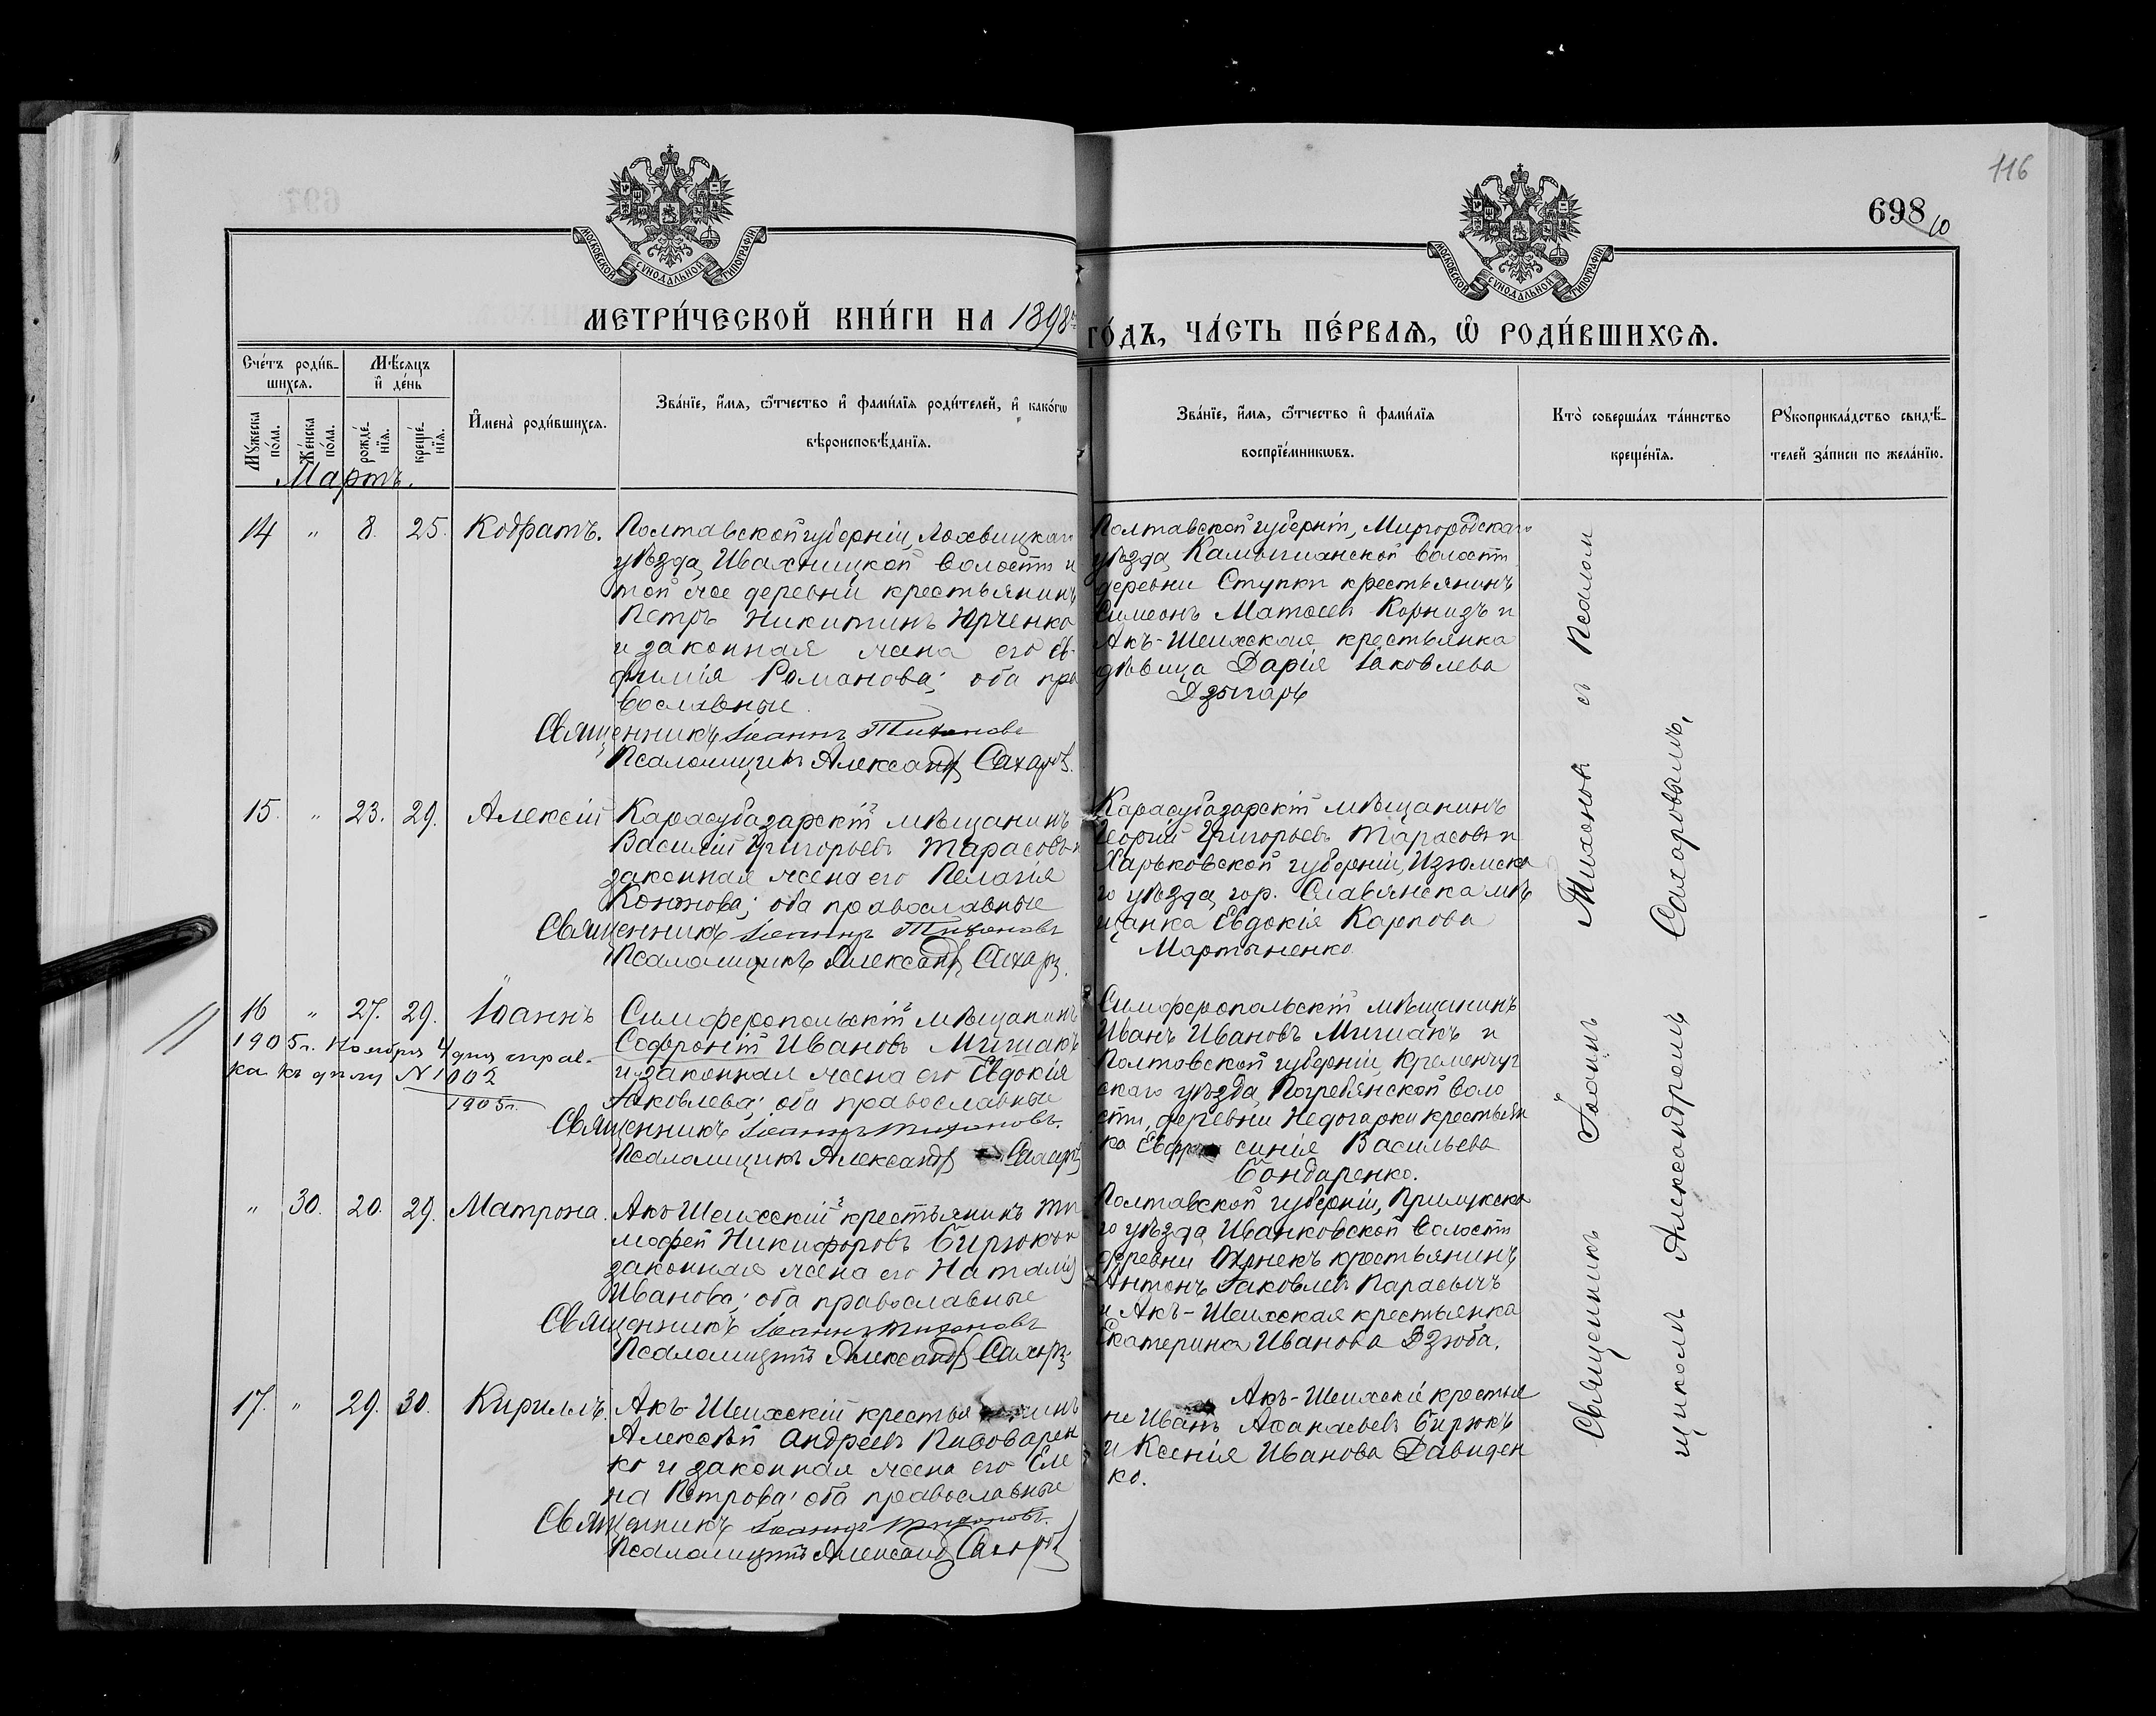 116
698
10
МОСКОВСКОЙ СѴНОДАЛЬНОЙ ТИПОГРАФІИ
МОСКОВСКОЙ СѴНОДАЛЬНОЙ ТИПОГРАФІИ
МЕТРИ́ЧЕСКОЙ КНИ́ГИ НА 1898
ГО́ДЪ, ЧА́СТЬ ПЕ́РВАѦ, Ѽ РОДИ́ВШИХСѦ.
Сче́тъ роди́в-
шихсѧ.
Мѣ́сѧцъ
и҆ де́нь
Мꙋ́жеска по́ла.
Же́нска по́ла.
рожде́-нїѧ.
креще́-нїѧ.
И҆мена̀ роди́вшихсѧ.
Зва́нїе, и҆́мѧ, ѻ҆́тчество и҆ фами́лїѧ роди́телей, и҆ како́гѡ
вѣроисповѣ́данїѧ.
Зва́нїе, и҆́мѧ, ѻ҆́тчество и҆ фами́лїѧ
воспрїе́мникѡвъ.
Кто̀ соверша́лъ та́инство
креще́нїѧ.
Рꙋкоприкла́дство свидѣ́-
телей за́писи по жела́нїю.
Мартъ.
14 " 8. 25. Кодратъ.
Полтавской губерніи, Лохвицкаго
уѣзда, Ивахницкой волости и
той же деревни крестьянинъ
Петръ Никитинъ Юрченко
и законная жена его Ев-
фимія Романова; оба пра
вославные.
Священникъ Іоаннъ Тихоновъ
Псаломщикъ Александръ Сахаровъ.
Полтавской губерніи, Миргородскаго
уѣзда, волости
деревни Ступки крестьянинъ
Симеонъ Матѳеевъ Корнизъ и
Акъ-Шеихская крестьянка
дѣвица Дарія Іаковлева
Дзыгарь
15. " 23. 29. Алексій
Карасубазарскій мѣщанинъ
Василій Григорьевъ Тарасовъ и
законная жена его Пелагія
Кононова; оба православные
Священникъ Іоаннъ Тихоновъ
Псаломщикъ Александръ Сахаровъ.
Карасубазарскій мѣщанинъ
Георгій Григорьевъ Тарасовъ и
Харьковской губерніи, Изюмска
го уѣзда, гор. Славянска мѣ
щанка Евдокія Карпова
Мартыненко.
16 " 27. 29. Іоаннъ
1905 г. Ноября 4 дня справ-
ка къ дѣлу N 1002
1905 г.
Симферопольскій мѣщанинъ
Софроній Ивановъ Мишакъ
и законная жена его Евдокія
Іаковлева; оба православные
Священникъ Іоаннъ Тихоновъ.
Псаломщикъ Александръ Сахаровъ
Симферопольскій мѣщанинъ
Иванъ Ивановъ Мишакъ и
Полтавской губерніи, Кременчуг
скаго уѣзда, Погребянской воло
сти, деревни Недогарки крестьян
ка Евфросинія Васильева
Бондаренко.
" 30. 20. 29. Матрона.
Акъ-Шеихскій крестьянинъ Ти
мофей Никифоровъ Бирюкъ и
законная жена его Наталія
Иванова; оба православные
Священникъ Іоаннъ Тихоновъ
Псаломщикъ Александръ Сахаровъ.
Полтавской губерніи, Прилукска
го уѣзда Иванковской волости
деревни крестьянинъ
Антонъ Іаковлевъ Парасычъ
и Акъ-Шеихская крестьянка
Екатерина Иванова Дзюба.
17. " 29. 30. Кириллъ.
Акъ-Шеихскій крестьянинъ
Алексѣй Андреевъ Пивоварен
ко и законная жена его Еле
на Петрова; оба православные
Священникъ Іоаннъ Тихоновъ.
Псаломщикъ Александръ Сахаровъ
Акъ-Шеихскіе крестья
не Иванъ Аѳанасьевъ Бирюкъ
и Ксенія Иванова Давиден
ко.
Священникъ Іоаннъ Тихоновъ съ Псалом
щикомъ Александромъ Сахаровымъ,